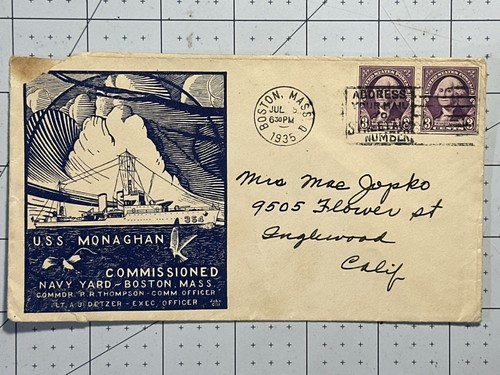 BOSTON, MASS.
JUL
630PM
1935
ADDRESS
YOUR MAIL
NUMBER
3
3
354
USS MONAGHAN
COMMISSIONED
NAVY YARD - BOSTON, MASS.
COMMDR. R.R. THOMPSON - COMM. OFFICER
LT. A.J. DETZER - EXEC. OFFICER
Mrs Mae Jopko
9505 Flower st
Inglewood
Calif